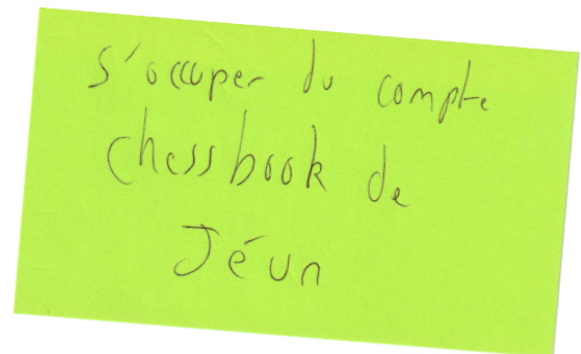 s'occuper du compte
chessbook de
Jéun